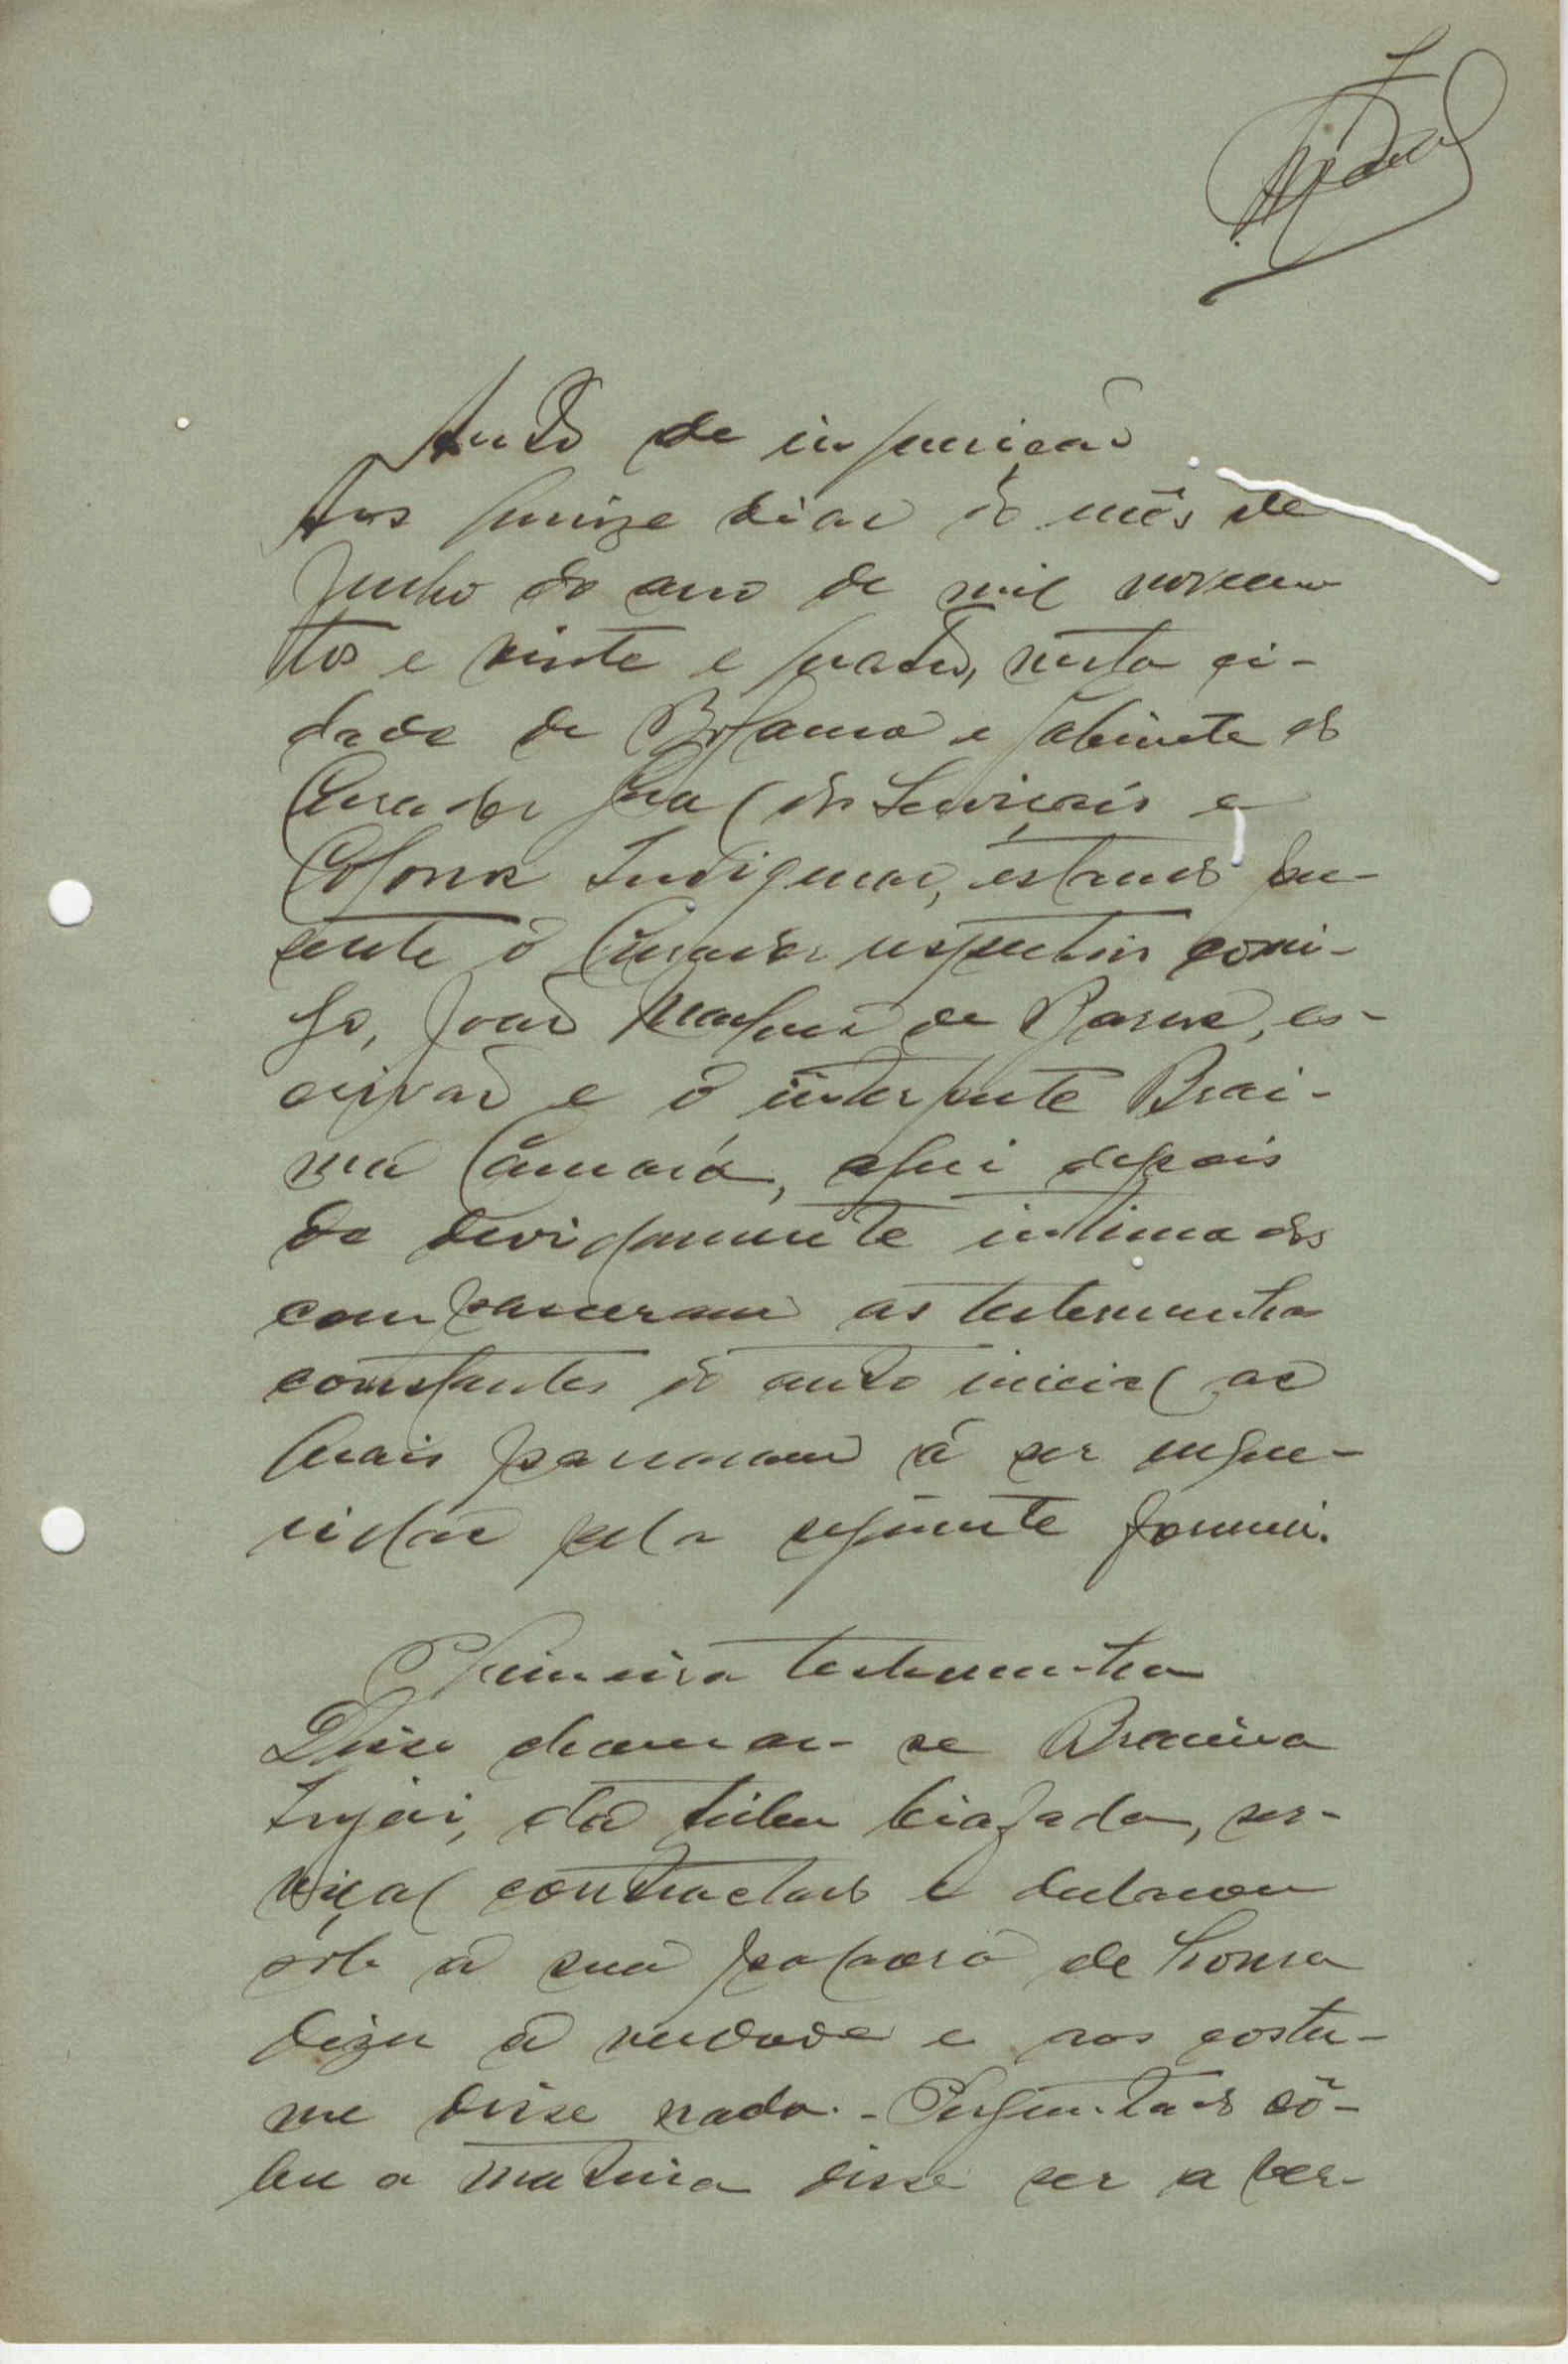 Auto de inquirição
Aos quinze dias do mês de
Junho do ano de mil novecen
tos e vinte e quatro, nesta ci-
dade de Bolama e gabinete do
Curador Geral dos Serviçais e
Colonos Indigenas, estando pre-
sente o Curador respectivo comi-
go, João de Barros, es-
crivão e o interprete Brai-
ma Câmará, aqui depois
de devidamente intimados
compareceram as testemunhas
constantes do auto inicial as
quais passaram á ser inque-
ridas pela seguinte forma:
Primeira testemunha
Disse chamar-se Braima
Injai, da tribu biafada, ser-
viçal contractado e declarou
sob a sua palavra de honra
dizer a verdade e aos costu-
me disse nada. - Perguntado sô-
bre a materia disse ser a ver-